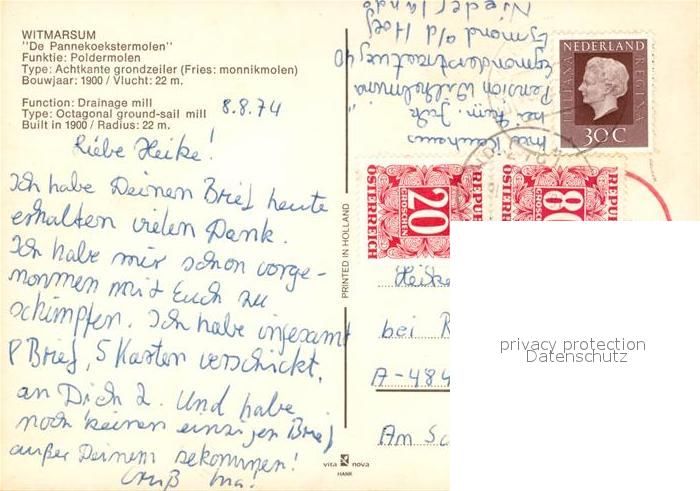 WITMARSUM
"De Pannekoekstermolen"
Funktie: Poldermolen
Type: Achtkante grondzeiler (Fries: monnikmolen)
Bouwjaar: 1900 / Vlucht: 22 m.
Function: Drainage mill
Type: Octagonal ground-sail mill
Built in 1900 / Radius: 22 m.
8.8.74
Liebe Heike!
Ich habe Deinen Brief heute
erhalten vielen Dank.
Ich habe mir schon vorge-
nommen mit Euch zu
schimpfen. Ich habe insgesamt
8 Brief, 5 Karten verschickt,
an Dich 2. Und habe
noch keinen einzigen Brief
außer Deinem bekommen!
Gruß Ina!
PRINTED IN HOLLAND
vita nova
HANK
Ina
bei Fam.
Pension Wilhelmina
Egmonderstraatweg 40
Egmond a/d Hoef
Niederlande
NEDERLAND
JULIANA REGINA
30 C
REPUB
20
GROSCHEN
ÖSTERREICH
REPUB
80
GROSCHEN
ÖSTERREICH
Heike
bei R
A-484
Am Sc
privacy protection
Datenschutz